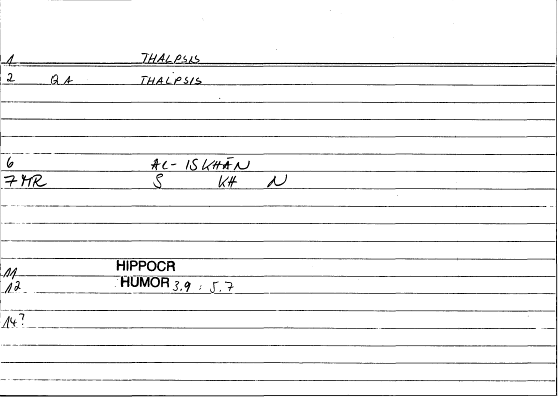 1 THALPSIS
2 QA THALPSIS
6 AL- ISKHĀN
7 MR S KH N
11 HIPPOCR
12 HUMOR 3.9 : 5.7
14?